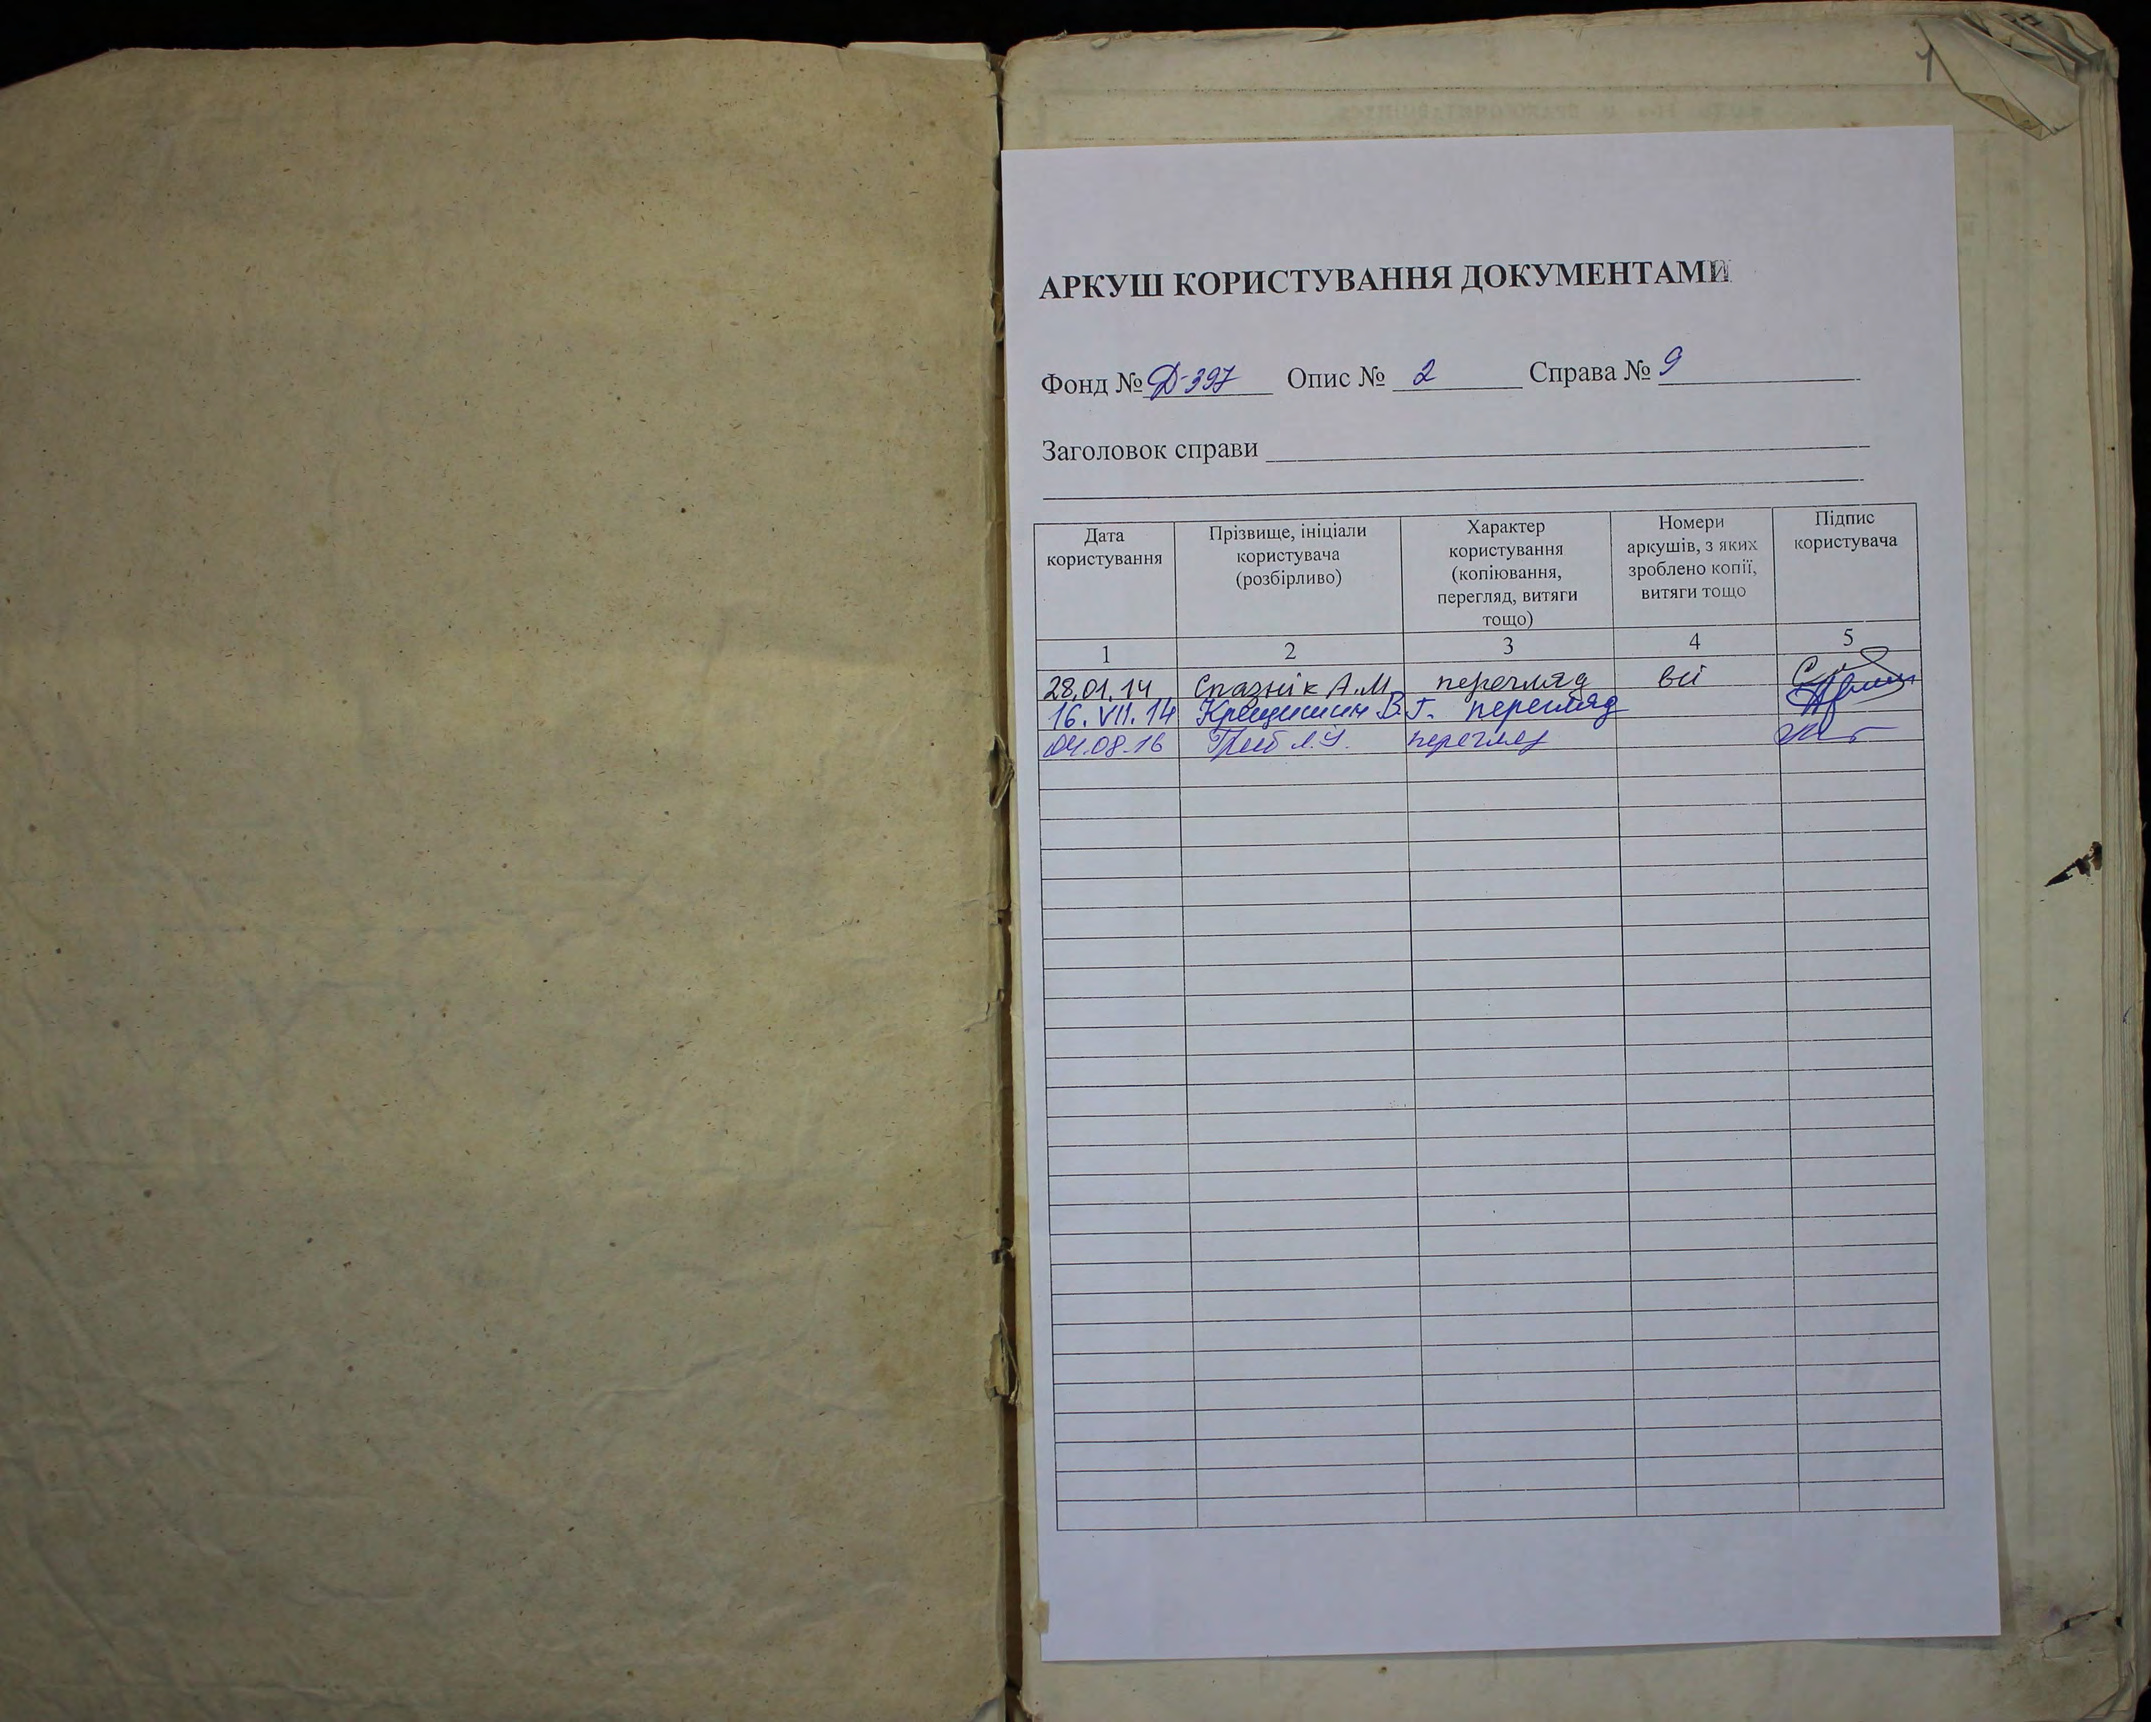 1
АРКУШ КОРИСТУВАННЯ ДОКУМЕНТАМИ
Фонд № Д-397 Опис № 2 Справа № 9
Заголовок справи
Дата користування
Прізвище, ініціали користувача (розбірливо)
Характер користування (копіювання, перегляд, витяги тощо)
Номери аркушів, з яких зроблено копії, витяги тощо
Підпис користувача
1 2 3 4 5
28.01.14 А.М. перегляд всі
16.VII.14 В.Г. перегляд
04.08.16 перегляд